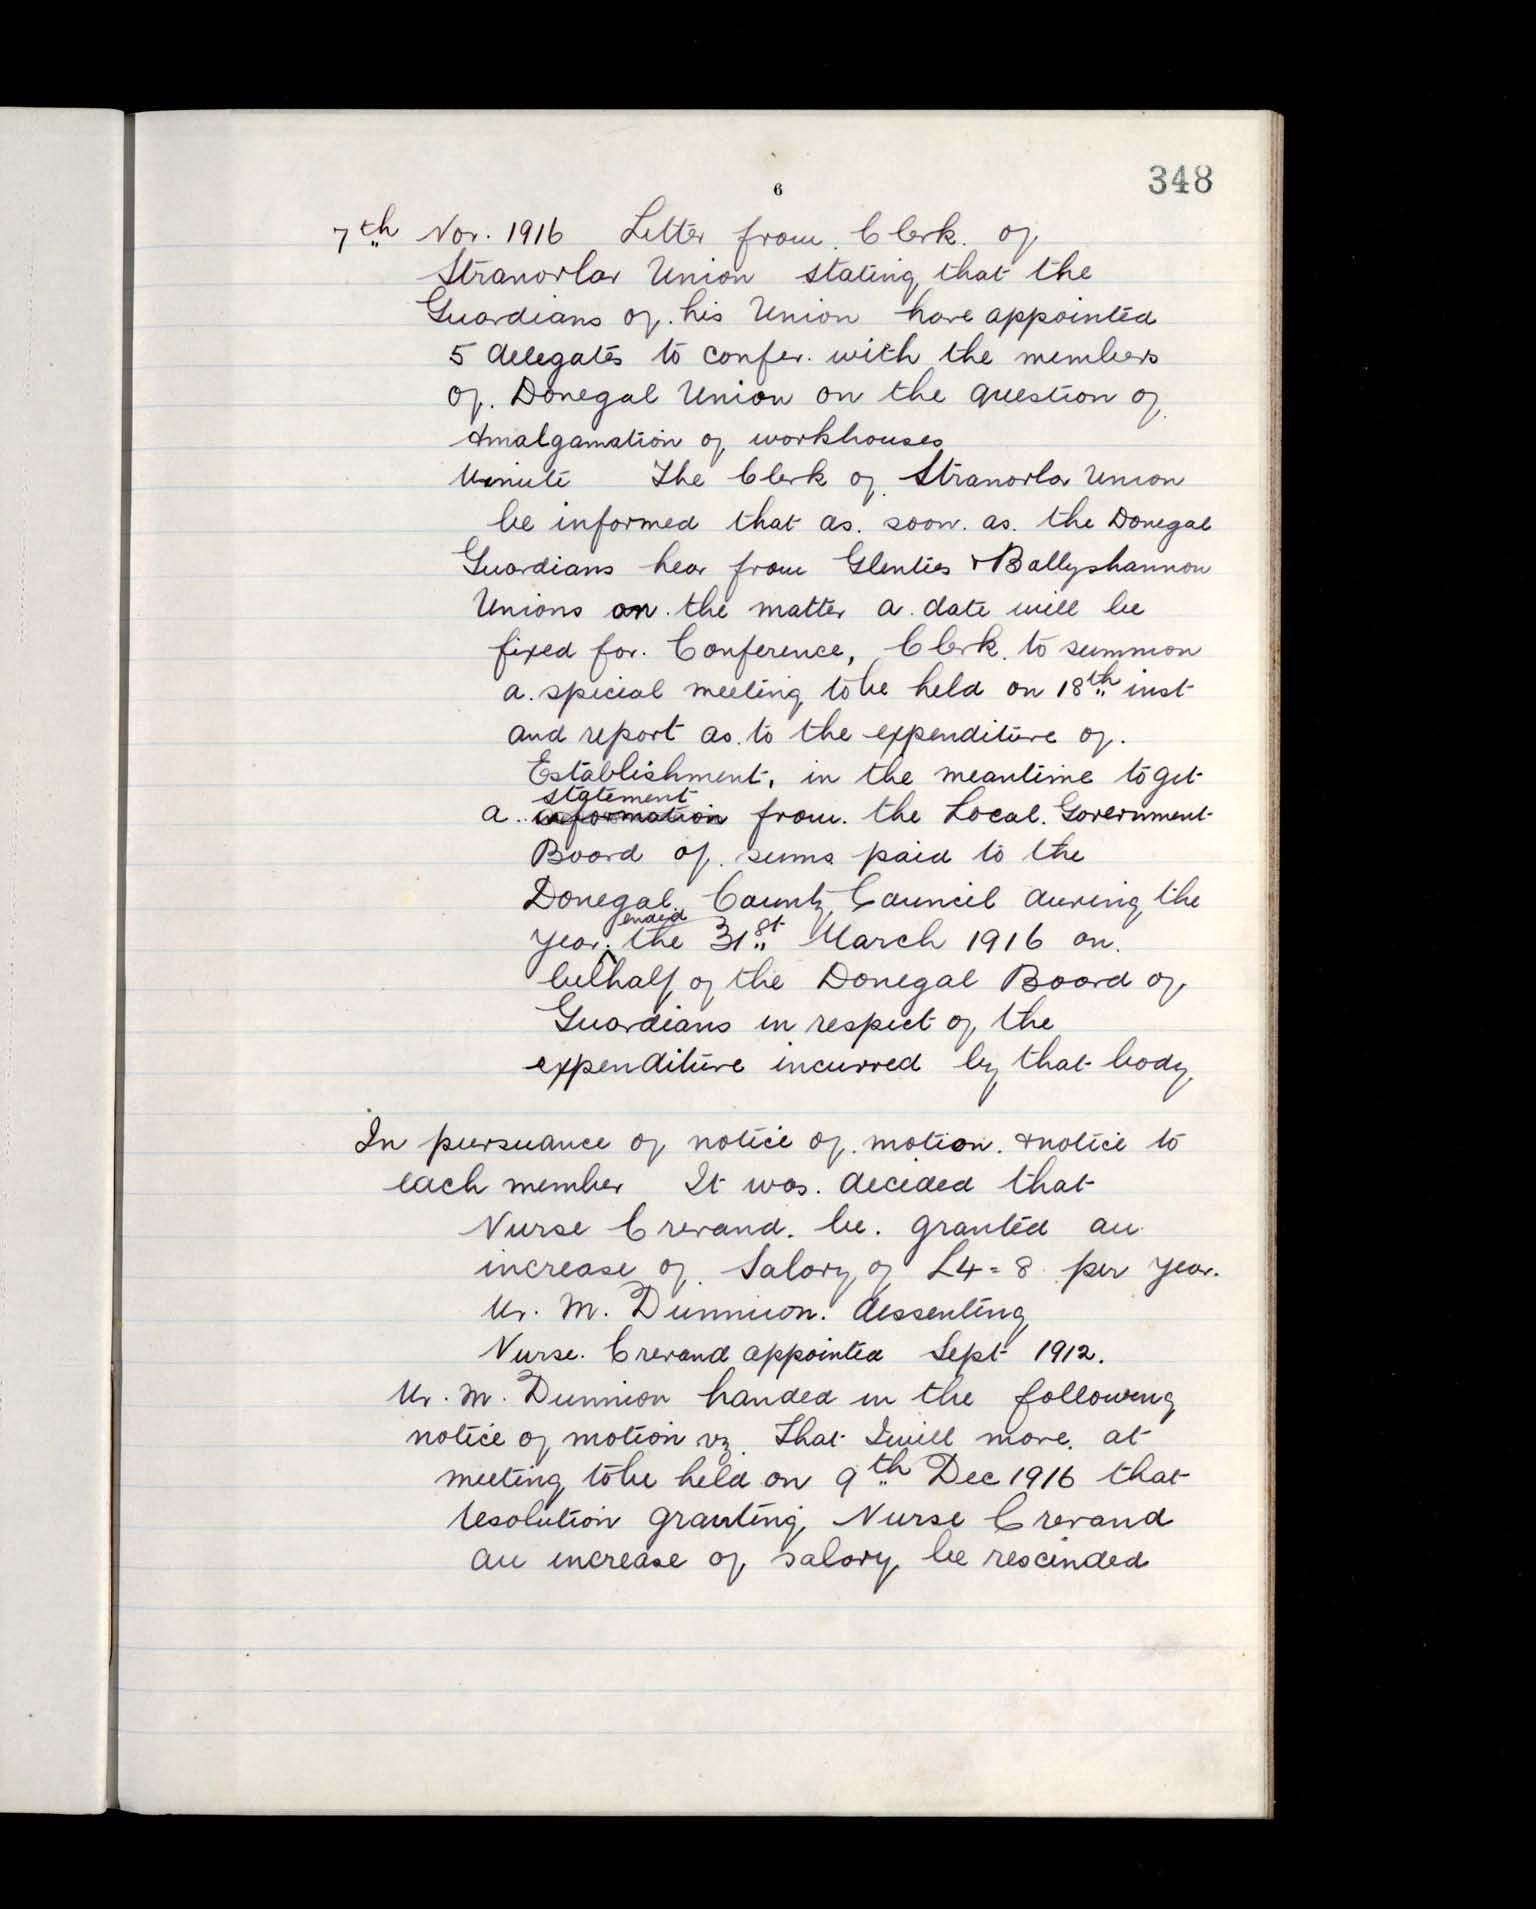 348
6
7th Nov. 1916 Letter from Clerk of
Stranorlar Union stating that the
Guardians of his Union have appointed
5 delegates to confer with the members
of Donegal Union on the question of
Amalgamation of workhouses
Minute The Clerk of Stranorlar Union
be informed that as soon as the Donegal
Guardians hear from Glenties & Ballyshannon
Unions on the matter a date will be
fixed for Conference, Clerk to summon
a special meeting to be held on 18th inst
and report as to the expenditure of
Establishment, in the meantime to get
statement
a information from the Local Government
Board of sums paid to the
Donegal County Council during the
ended
year the 31st March 1916 on
behalf of the Donegal Board of
Guardians in respect of the
expenditure incurred by that body
In pursuance of notice of motion & notice to
each member It was decided that
Nurse Crevand be granted an
increase of Salary of £4=8 per year.
Mr. M. Dunnion dessenting
Nurse Crevand appointed Sept 1912.
Mr. M. Dunnion handed in the following
notice of motion vz That I will move at
meeting to be held on 9th Dec 1916 that
resolution granting Nurse Crevand
an increase of salary be rescinded